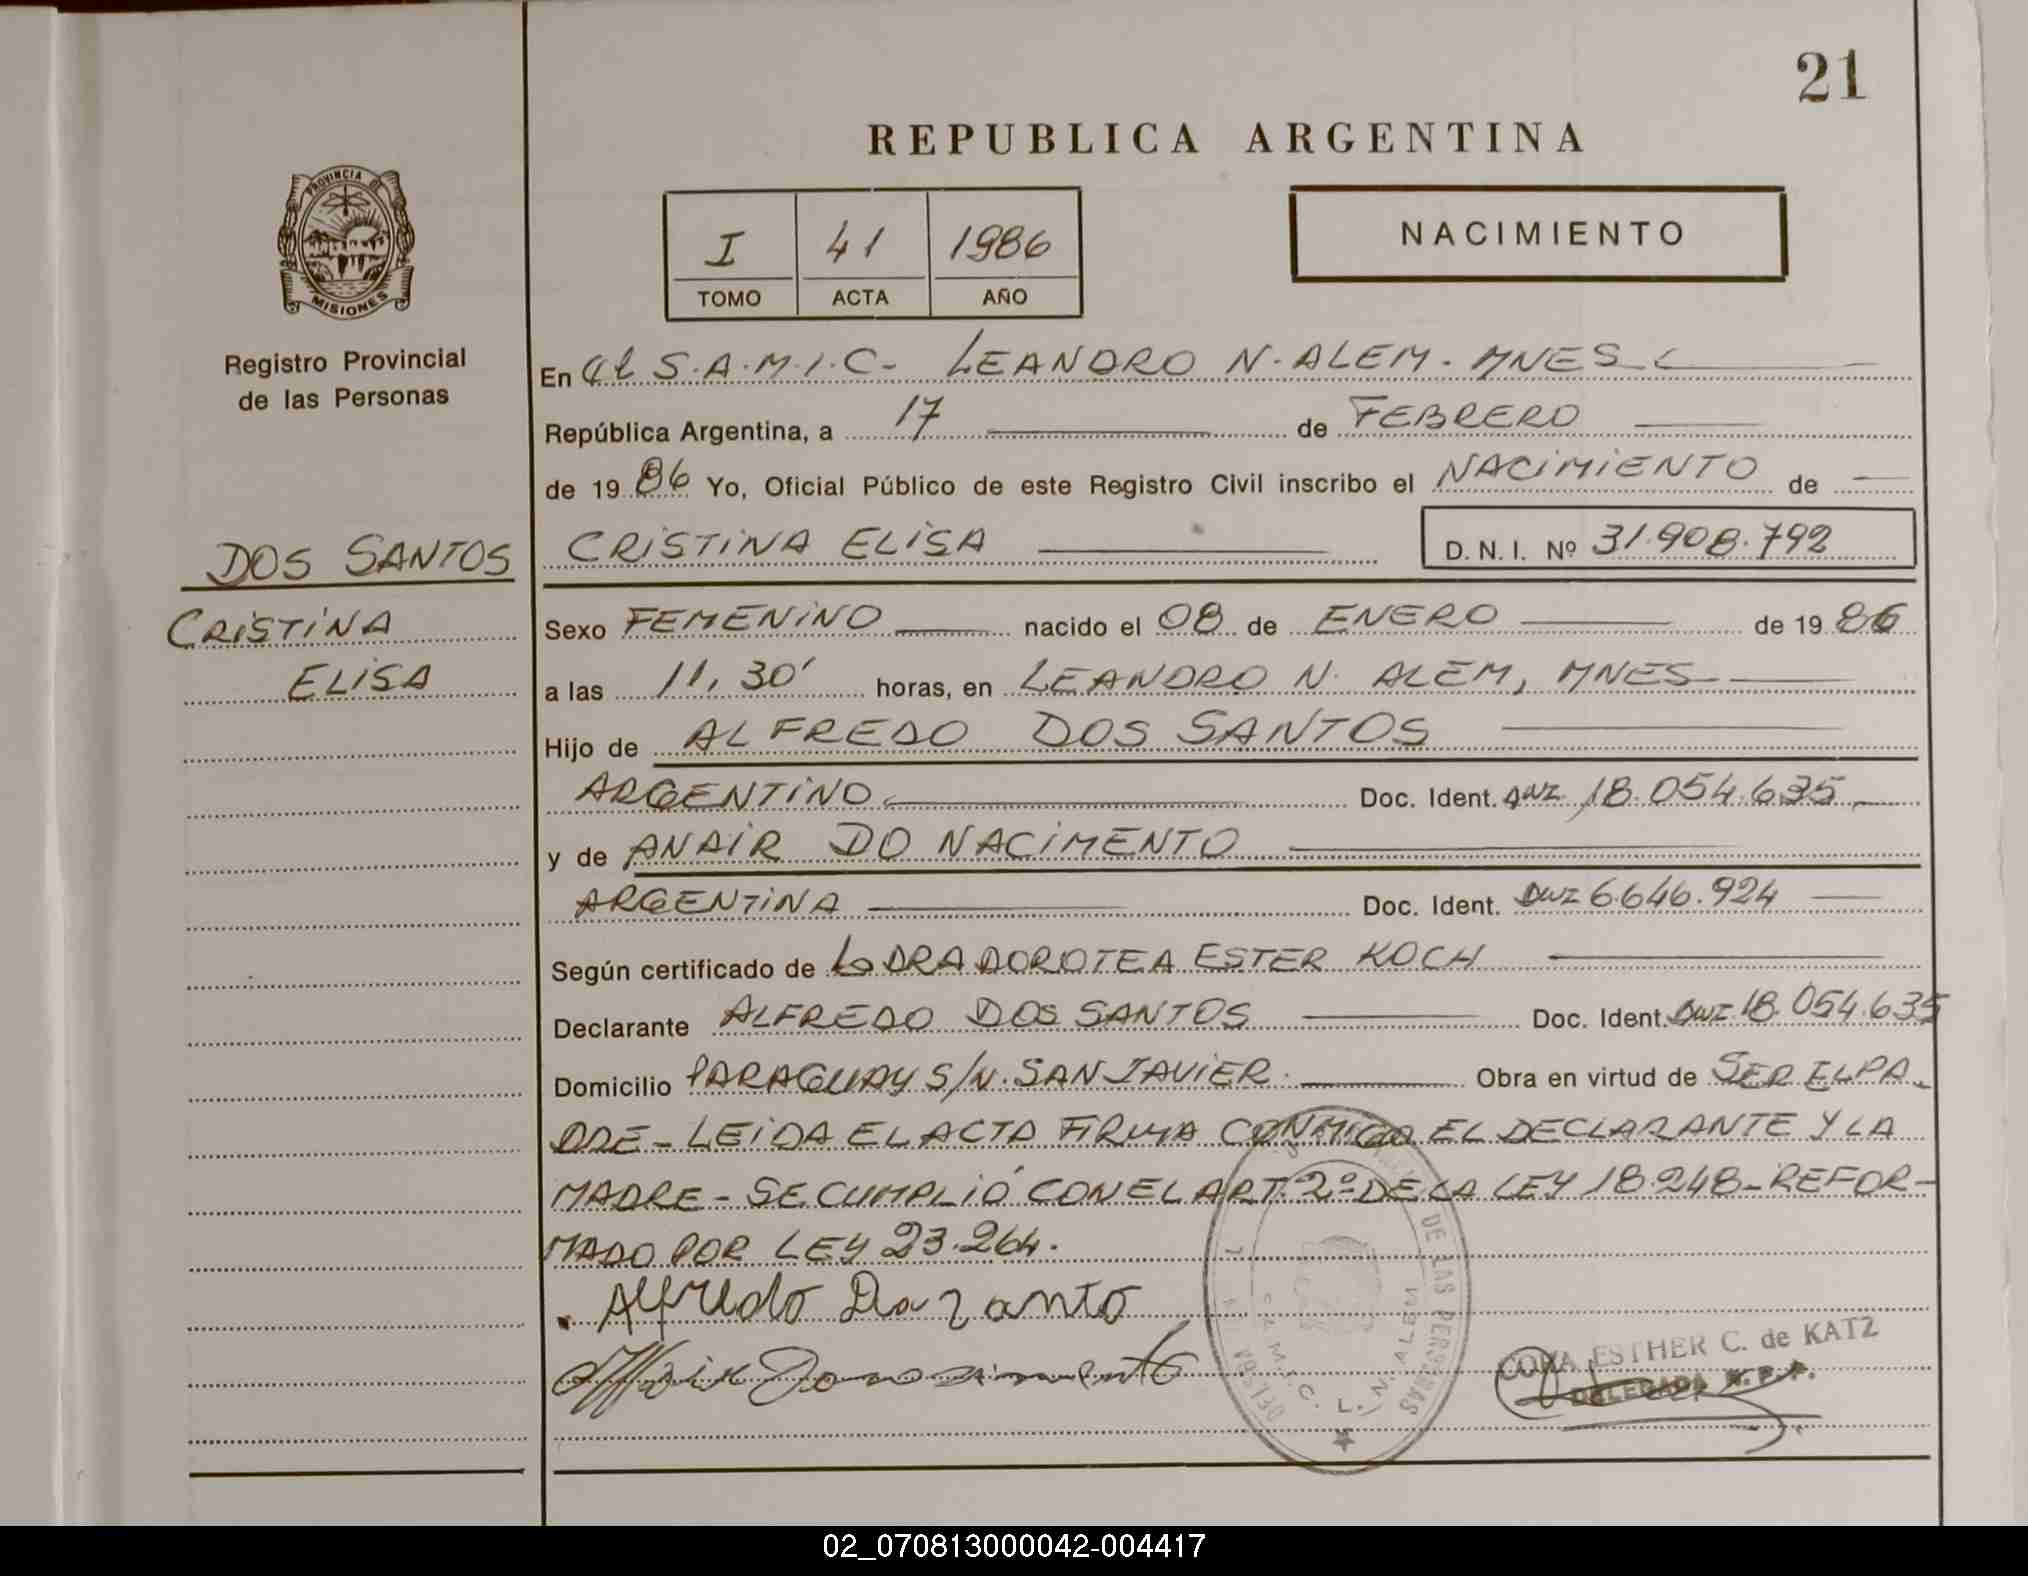 21
REPUBLICA ARGENTINA
PROVINCIA DE
MISIONES
I 41 1986
TOMO ACTA AÑO
NACIMIENTO
Registro Provincial
de las Personas
DOS SANTOS
CRISTINA
ELISA
En el S.A.M.I.C- LEANDRO N. ALEM. MNES
República Argentina, a 17 de FEBRERO
de 1986 Yo, Oficial Público de este Registro Civil inscribo el NACIMIENTO de
CRISTINA ELISA D. N. I. Nº 31.908.792
Sexo FEMENINO nacido el 08 de ENERO de 1986
a las 11,30' horas, en LEANDRO N. ALEM, MNES
Hijo de ALFREDO DOS SANTOS
ARGENTINO Doc. Ident. 18.054.635
y de ANAIR DO NACIMENTO
ARGENTINA Doc. Ident. 6.646.924
Según certificado de LA DRA DOROTEA ESTER KOCH
Declarante ALFREDO DOS SANTOS Doc. Ident. 18.054.635
Domicilio PARAGUAY S/N. SAN JAVIER. Obra en virtud de SER EL PA-
DRE - LEIDA EL ACTA FIRMA CONMIGO EL DECLARANTE Y LA
MADRE - SE CUMPLIÓ CON EL ART. 2º DE LA LEY 18.248 - REFOR-
MADO POR LEY 23.264.
Alfredo Do zanto
Do nacimento
DE LAS PERSONAS
S.A.M.I.C. L. N. ALEM
ESTHER C. de KATZ
DELEGADA R. P. P.
02_070813000042-004417